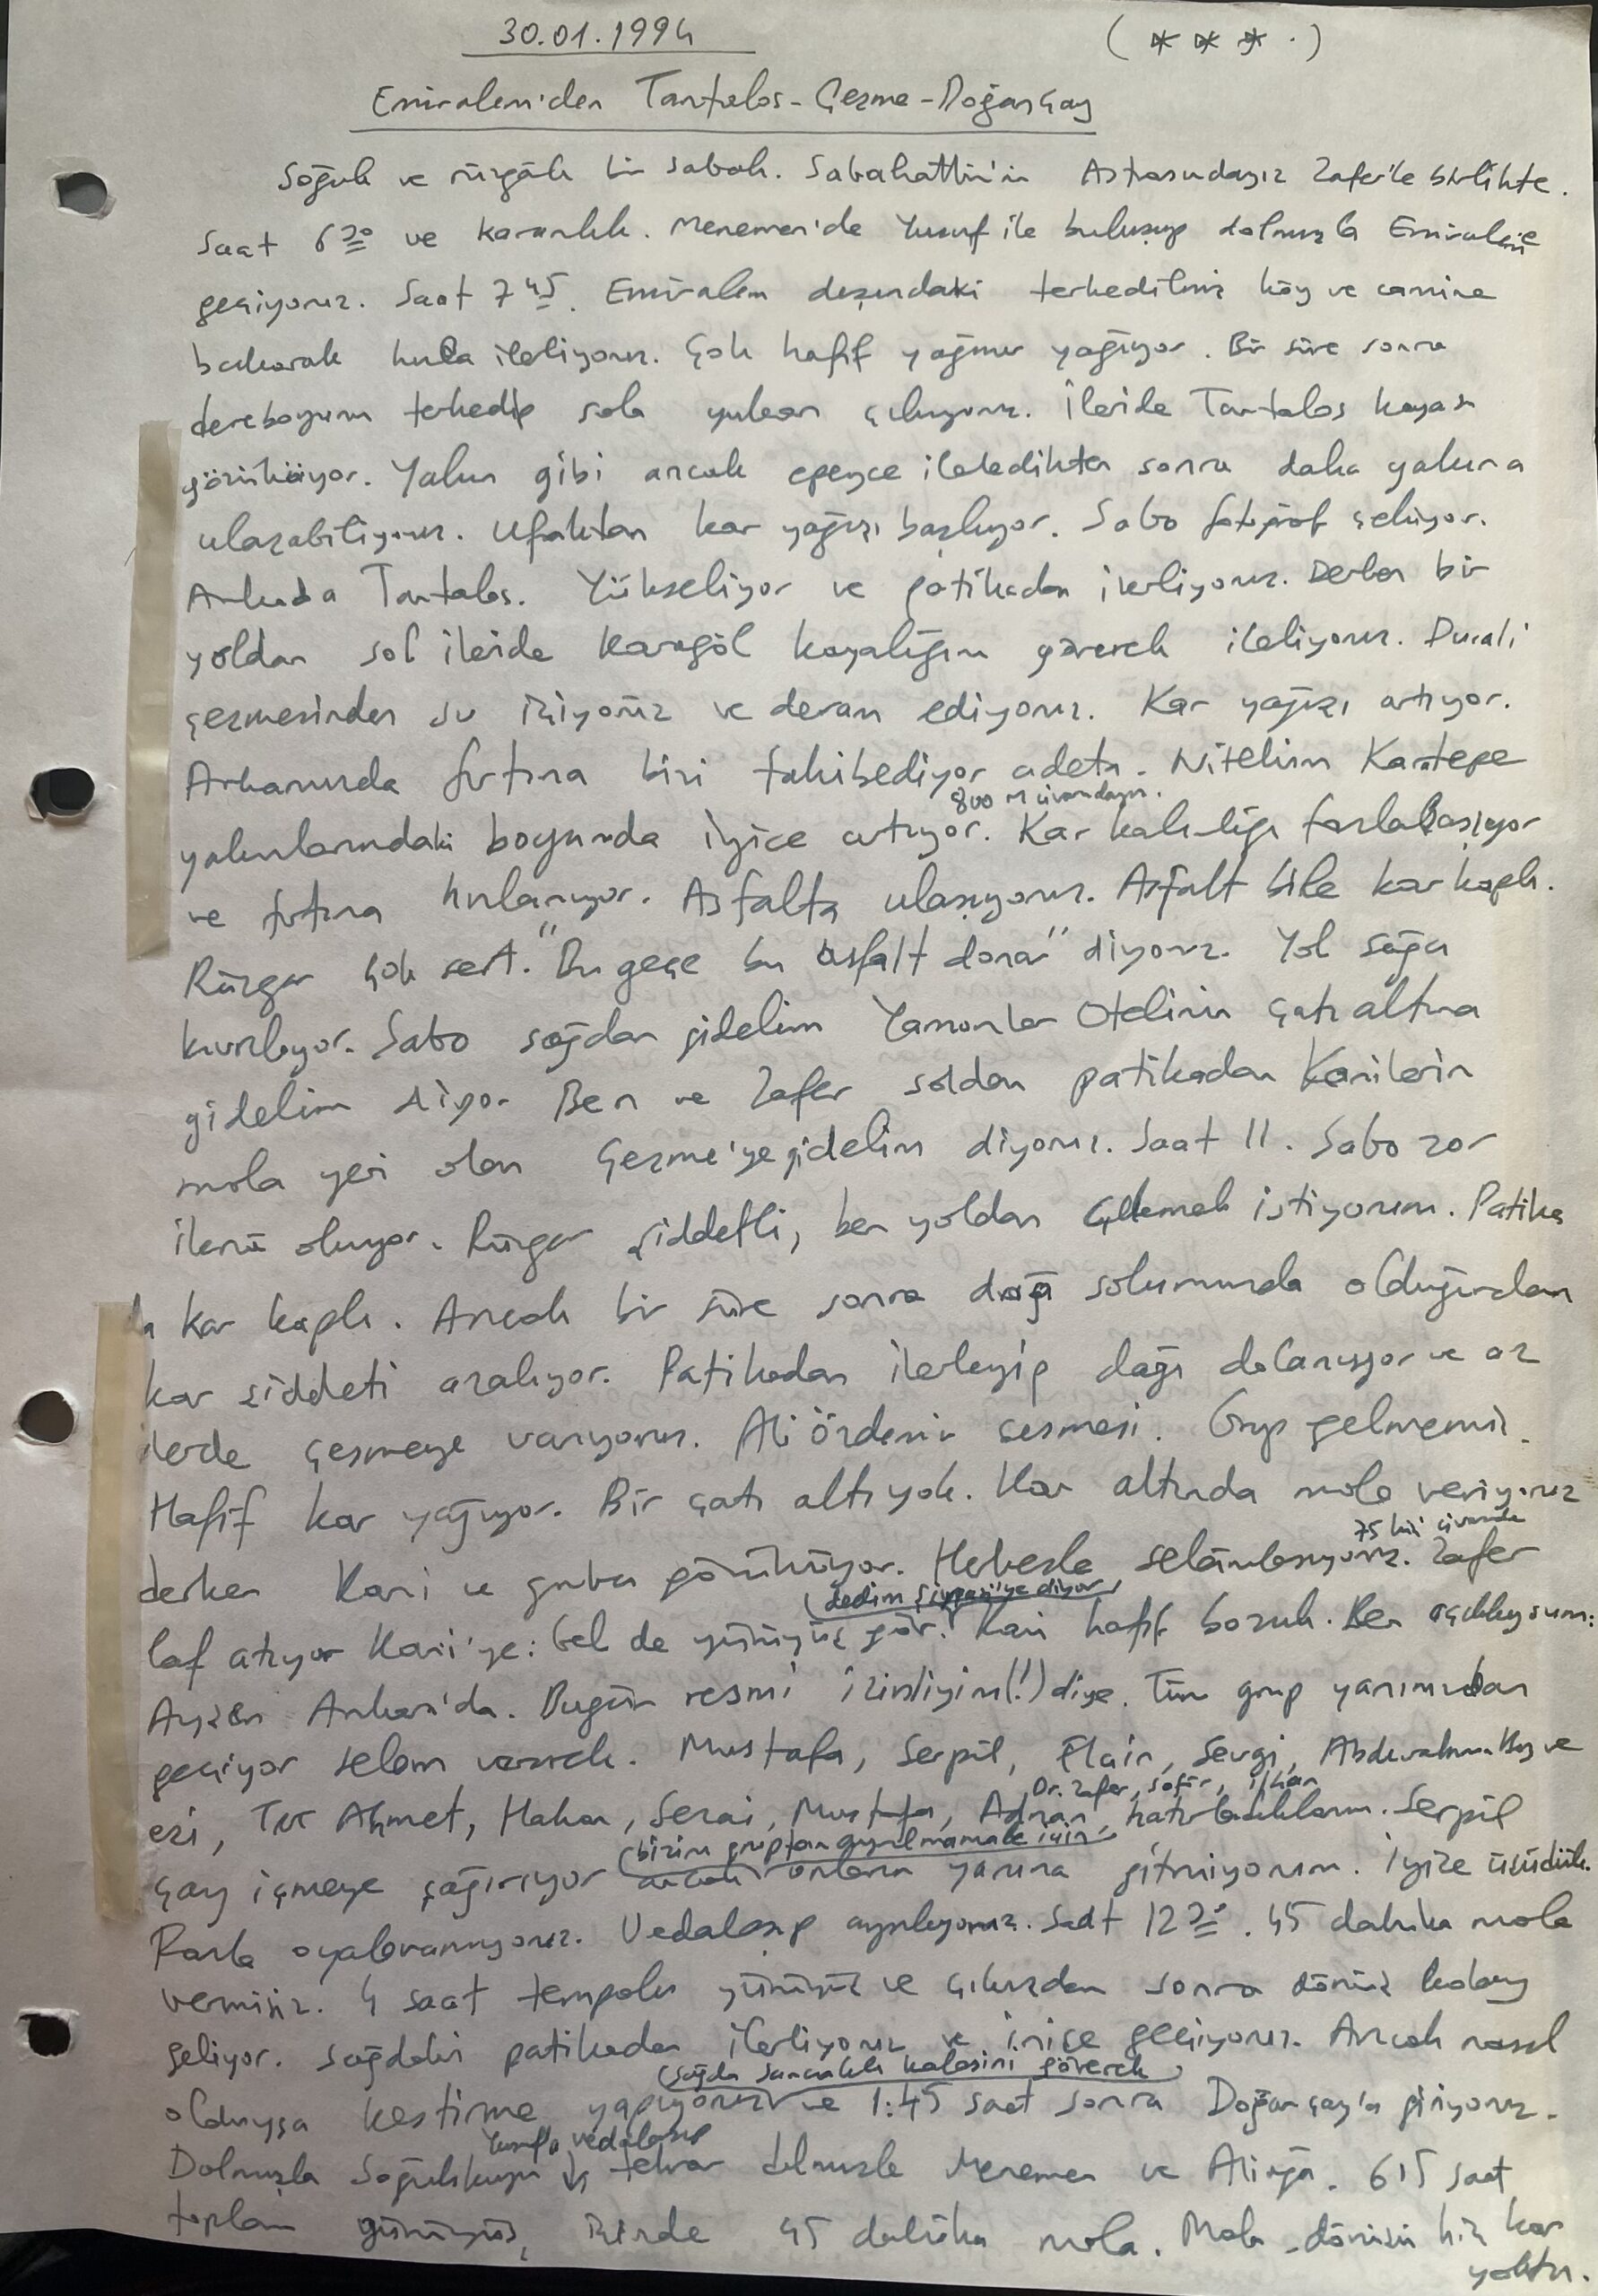 30.01.1994 (* * * ·)
Emiralem'den Tantalos - Çeşme - Doğançay
Soğuk ve rüzgârlı bir sabah. Sabahattin'in Astrasındayız Zafer'le birlikte.
Saat 6 30 ve karanlık. Menemen'de Yusuf ile buluşup dolmuşla Emiralem'e
geçiyoruz. Saat 7 45. Emiralem dışındaki terkedilmiş köy ve camine
bakarak hızla ilerliyoruz. Çok hafif yağmur yağıyor. Bir süre sonra
dereboyunu terkedip sola yukarı çıkıyoruz. İleride Tantalos kayası
görünüyor. Yakın gibi ancak epeyce ilerledikten sonra daha yakına
ulaşabiliyoruz. Ufaktan kar yağışı başlıyor. Sabo fotoğraf çekiyor.
Arkada Tantalos. Yükseliyor ve patikadan ilerliyoruz. Derken bir
yoldan sol ileride Karagöl kayalığını görerek ilerliyoruz. Durali
çeşmesinden su içiyoruz ve devam ediyoruz. Kar yağışı artıyor.
Arkamızda fırtına bizi takibediyor adeta. Nitekim Karatepe
800 m civarındayız.
yakınlarındaki boyunda iyice artıyor. Kar kalınlığı fazlalaşıyor
ve fırtına hızlanıyor. Asfalta ulaşıyoruz. Asfalt bile kar kaplı.
Rüzgar çok sert. "Bu gece bu asfalt donar" diyoruz. Yol sağa
kıvrılıyor. Sabo sağdan gidelim Yamanlar Otelinin çatı altına
gidelim diyor Ben ve Zafer soldan patikadan Kani'lerin
mola yeri olan Çeşme'ye gidelim diyoruz. Saat 11. Sabo zor
ikna oluyor. Rüzgar şiddetli, ben yoldan istiyorum. Patika
da kar kaplı. Ancak bir süre sonra dağ solumuzda olduğundan
kar şiddeti azalıyor. Patikadan ilerleyip dağı dolanıyor ve az
ilerde çeşmeye varıyoruz. Ali çeşmesi. Grup gelmemiş.
Hafif kar yağıyor. Bir çatı altı yok. Kar altında mola veriyoruz
75 kişi civarında
derken Kani ve grubu görünüyor. Herkesle selâmlaşıyoruz. Zafer
(dedim diyor)
laf atıyor Kani'ye: Gel de yürüyüş gör! Kani hafif bozuk. Ben açıklıyorum:
Ankara'da. Bugün resmi izinliyim(!) diye. Tüm grup yanımızdan
geçiyor selam vererek. Mustafa, Serpil, Sevgi, Abdurrahman Bey ve
Dr. Zafer,
eşi, Ahmet, Hakan, Mustafa, Adnan, hatırladıklarım. Serpil
(bizim gruptan ayrılmamak için)
çay içmeye çağırıyor ancak onların yanına gitmiyorum. İyice üşüdük.
Fazla oyalanamıyoruz. Vedalaşıp ayrılıyoruz. Saat 12 30. 45 dakika mola
vermişiz. 4 saat tempolu yürüyüş ve çıkıştan sonra dönüş kolay
geliyor. Sağdaki patikadan ilerliyoruz ve inişe geçiyoruz. Ancak nasıl
(sağda Sancaklı kalesini görerek)
olduysa kestirme yapıyoruz ve 1:45 saat sonra Doğançay'a giriyoruz.
Yusuf'la vedalaşıp
Dolmuşla Soğukkuyu tekrar dolmuşla Menemen ve Aliağa. 6:15 saat
toplam yürüyüş, içinde 45 dakika mola. Mola dönüşü hiç kar
yoktu.